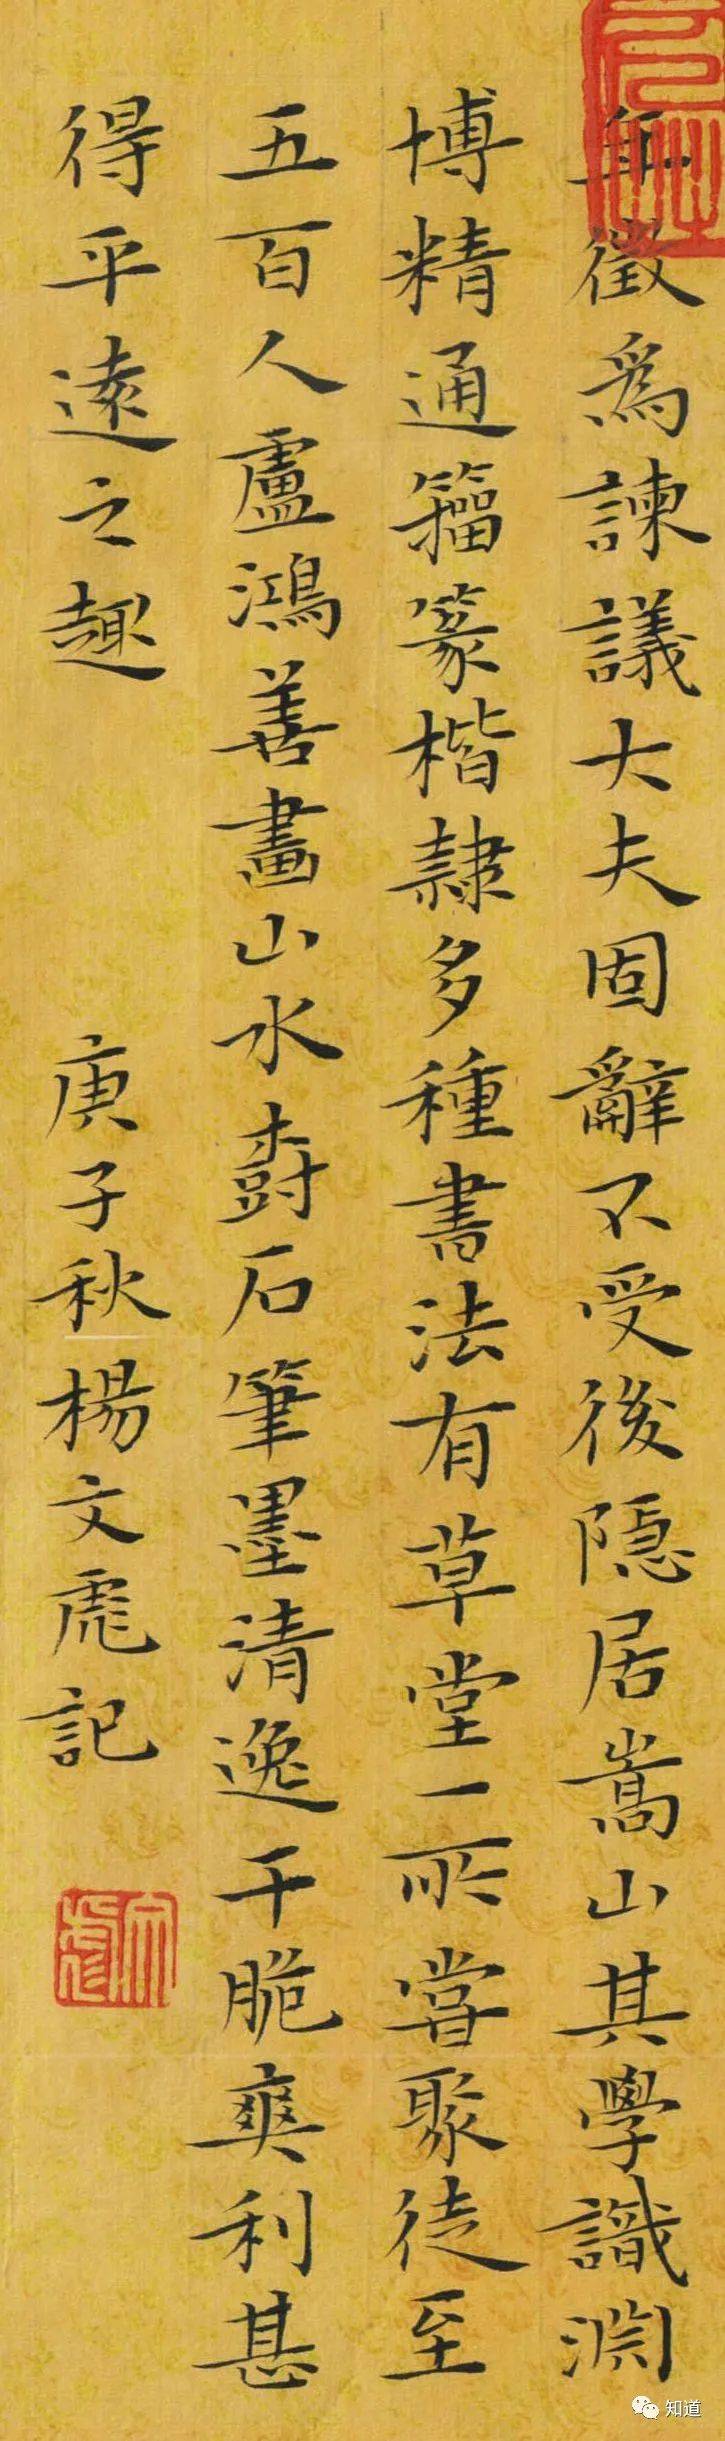 年徵爲諫議大夫固辭不受後隱居嵩山其學識淵
博精通籀篆楷隸多種書法有草堂一所嘗聚徒至
五百人盧鴻善畫山水樹石筆墨清逸干脆爽利甚
得平遠之趣
庚子秋楊文虎記
知道